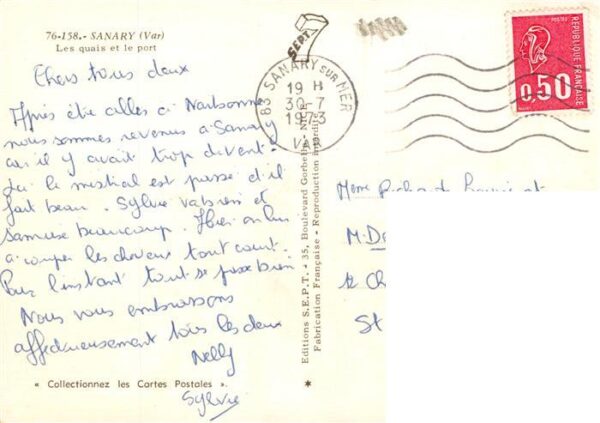 76-158.- SANARY (Var)
Les quais et le port
SEPT
83 SANARY SUR MER
19 H
30-7
1973
VAR
REPUBLIQUE FRANÇAISE
0,50
POSTES
Chers tous deux
Après être alles à Narbonne
nous sommes revenus à Sanary
car il y avait trop de vent.
Ici le mistral est passé et il
fait beau. Sylvie va bien et
s'amuse beaucoup. Hier on lui
a couper les cheveux tout court.
Pour l'instant tout se passe bien
Nous vous embrassons
affectueusement tous les deux
Nelly
Sylvie
« Collectionnez les Cartes Postales ».
Editions S.E.P.T. - 35, Boulevard Gorbella - Nice
Fabrication Française - Reproduction interdite
Mme
M.
12 Ch
St